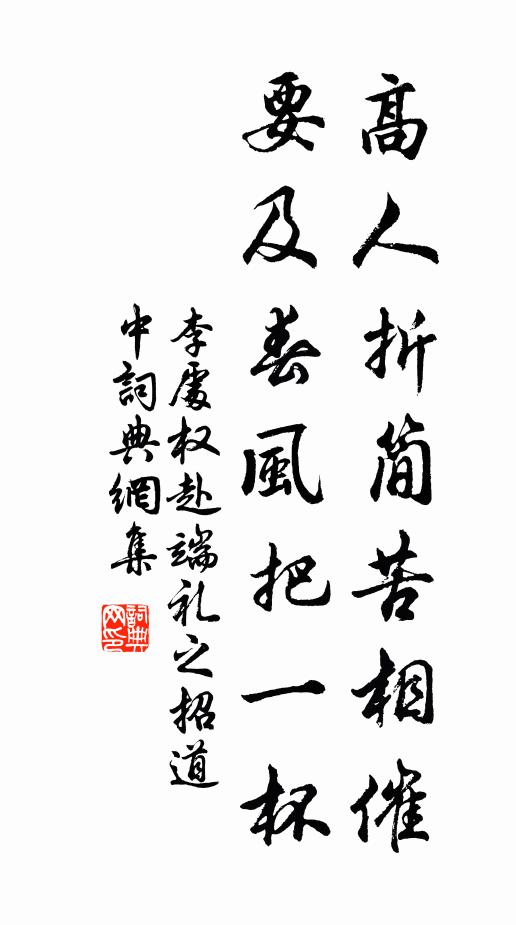 高人折簡苦相催
要及春風把一杯
李處权赴端礼之招道
中詞典網集
詞典網印